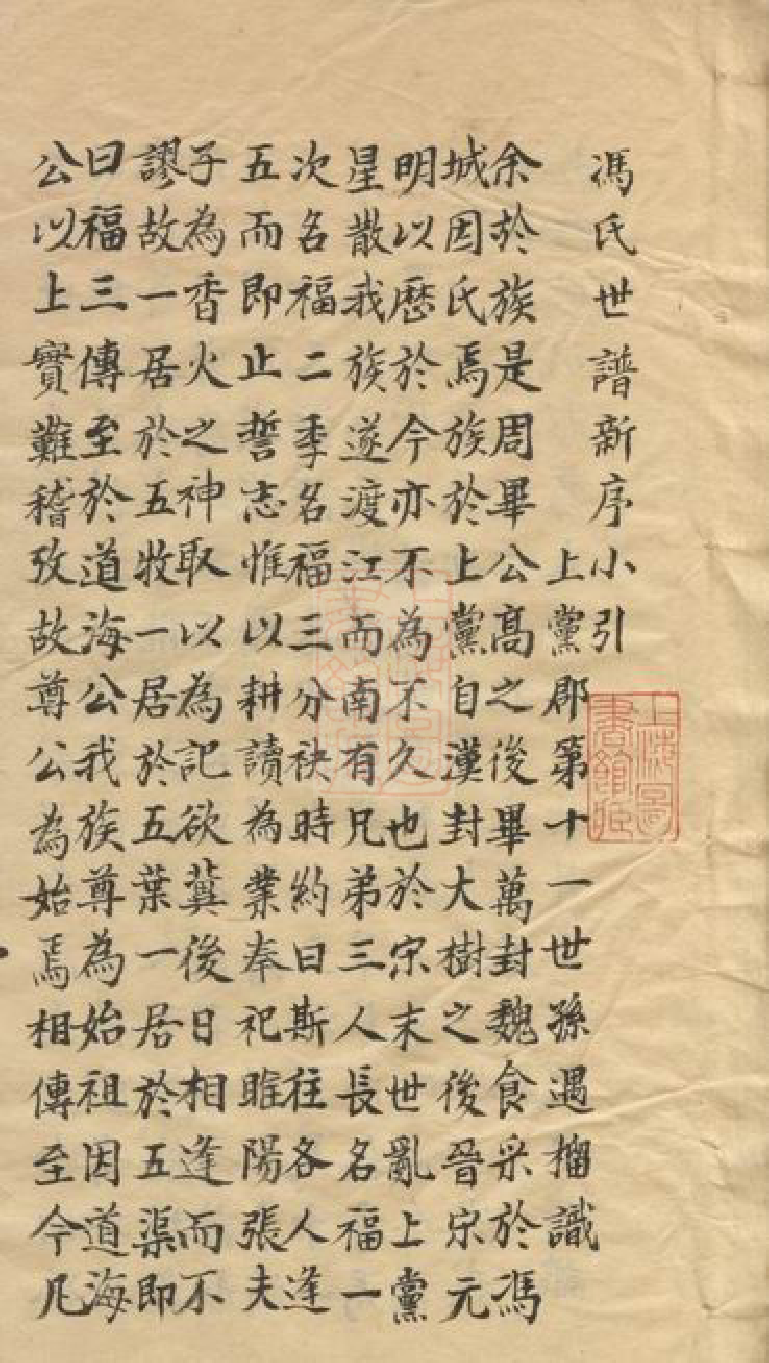 馮氏世譜新序小引
上黨郡第十一世孫遇榴識
余於族是周畢公高之後畢萬封魏食采於馮
城因氏焉族於上黨自漢封大樹之後晉宋元
明以歷於今亦不為不久也於宋末世亂上黨
星散我族遂渡江而南有兄弟三人長名福一
次名福二季名福三分袂時約曰斯往各人逢
五而即止誓志惟以耕讀為業奉祀睢陽張夫
子為香火之神取以為記欲冀後日相逢而不
謬故一居於五牧一居於五葉一居於五渠即
曰福三傳至於道海公我族尊為始祖因道海
公以上實難稽攷故尊公為始焉相傳至今凡
上海圖書館藏